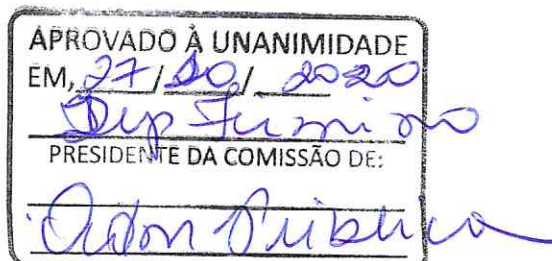 APROVADO À UNANIMIDADE
EM, 27/10/2020
Dep Firmino
PRESIDENTE DA COMISSÃO DE:
Adm Pública